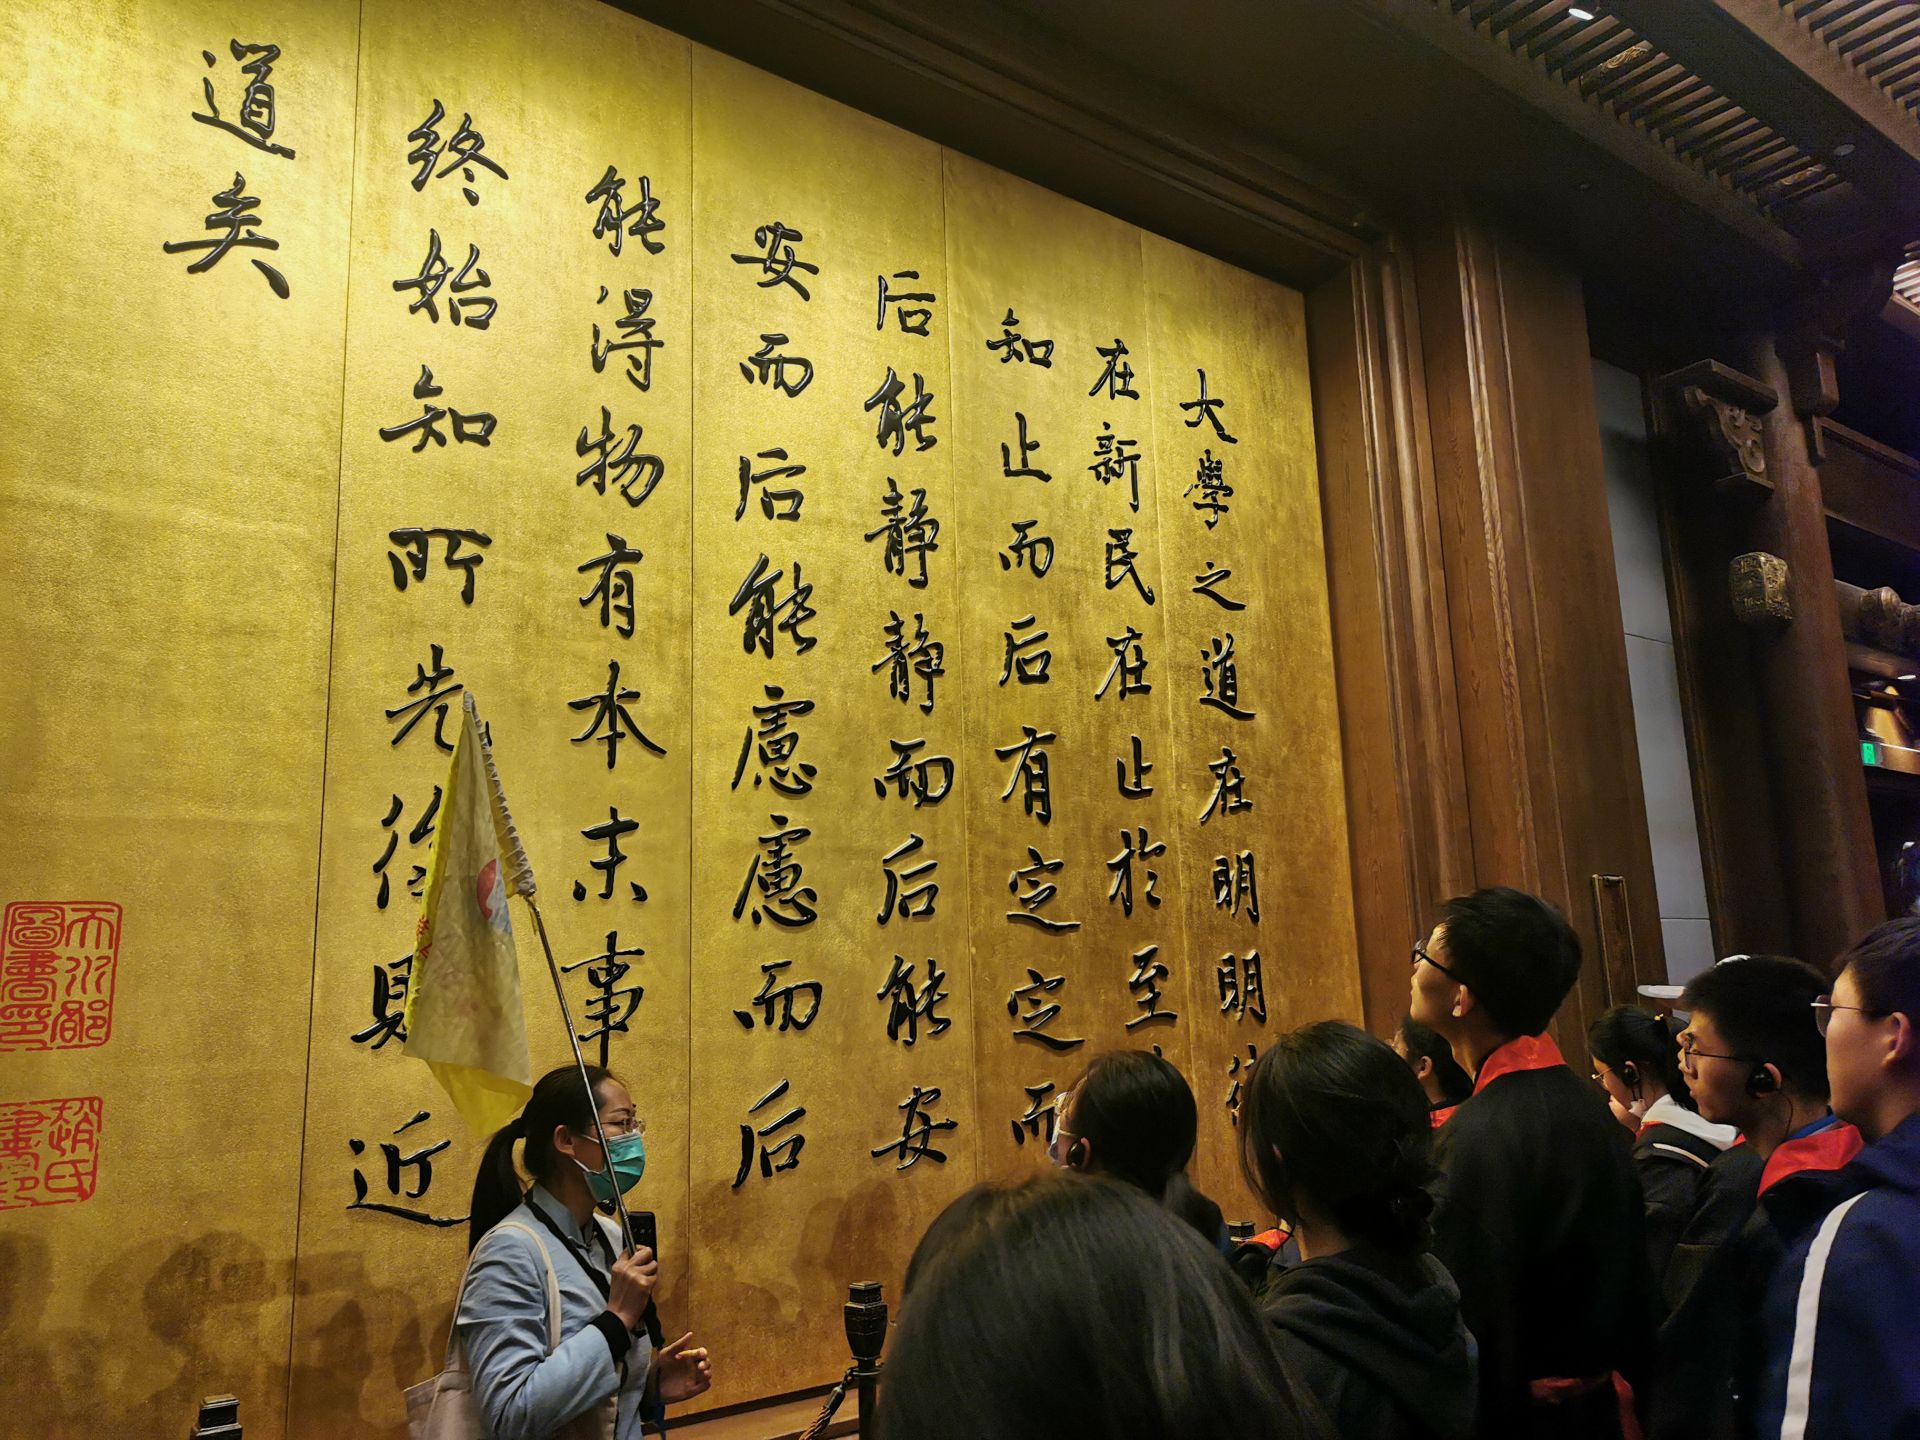 大學之道在明明
在新民在止於至
知止而后有定定而
后能靜靜而后能安
安而后能慮慮而后
能得物有本末事
終始知所先後則近
道矣
天水郡
圖書印
趙氏
書印